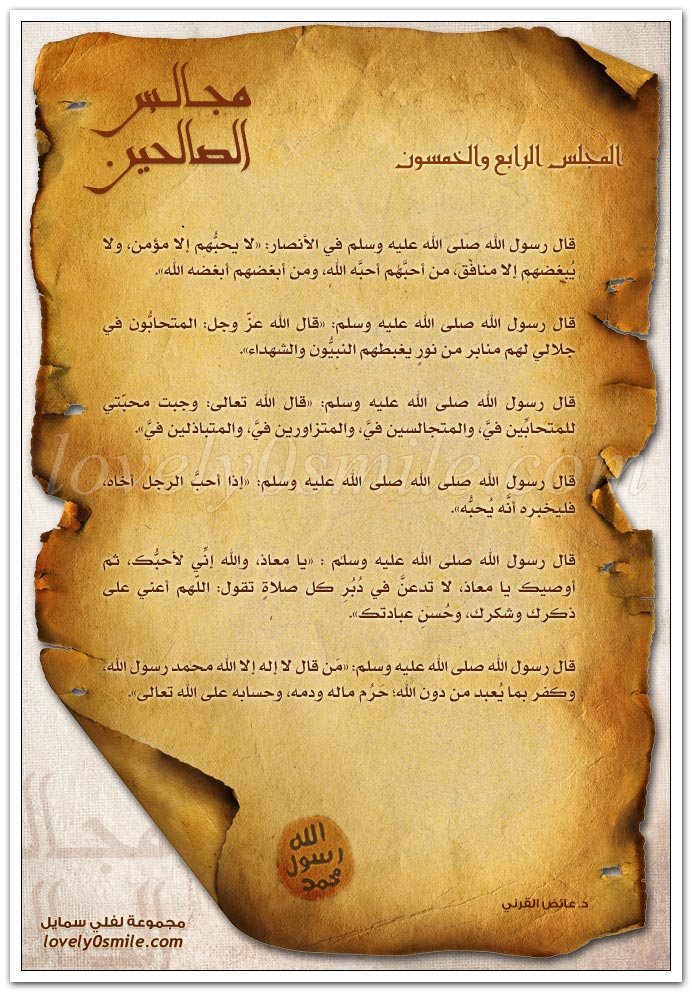 مجالس
الصالحين
المجلس الرابع والخمسون
قال رسول الله صلى الله عليه وسلم في الأنصار: «لا يحبُّهم إلا مؤمن، ولا
يُبغضهم إلا منافق، من أحبَّهم أحبَّه الله، ومن أبغضهم أبغضه الله».
قال رسول الله صلى الله عليه وسلم: «قال الله عزّ وجل: المتحابُّون في
جلالي لهم منابر من نورٍ يغبطهم النبيُّون والشهداء».
قال رسول الله صلى الله عليه وسلم: «قال الله تعالى: وجبت محبّتي
للمتحابِّين فيَّ، والمتجالسين فيَّ، والمتزاورين فيَّ، والمتباذلين فيَّ».
lovely0smile.com
قال رسول الله صلى الله صلى الله عليه وسلم: «إذا أحبَّ الرجل أخاه،
فليخبره أنَّه يُحبُّه».
قال رسول الله صلى الله عليه وسلم : «يا معاذ، والله إنِّي لأحبُّك، ثم
أوصيك يا معاذ، لا تدعنَّ في دُبُرِ كل صلاةٍ تقول: اللّهم أعني على
ذكرك وشكرك، وحُسنِ عبادتك».
قال رسول الله صلى الله عليه وسلم: «مَن قال لا إله إلا الله محمد رسول الله،
وكفر بما يُعبد من دون الله؛ حَرُم ماله ودمه، وحسابه على الله تعالى».
الله
رسول
محمد
د.عائض القرني
مجموعة لفلي سمايل
lovely0smile.com